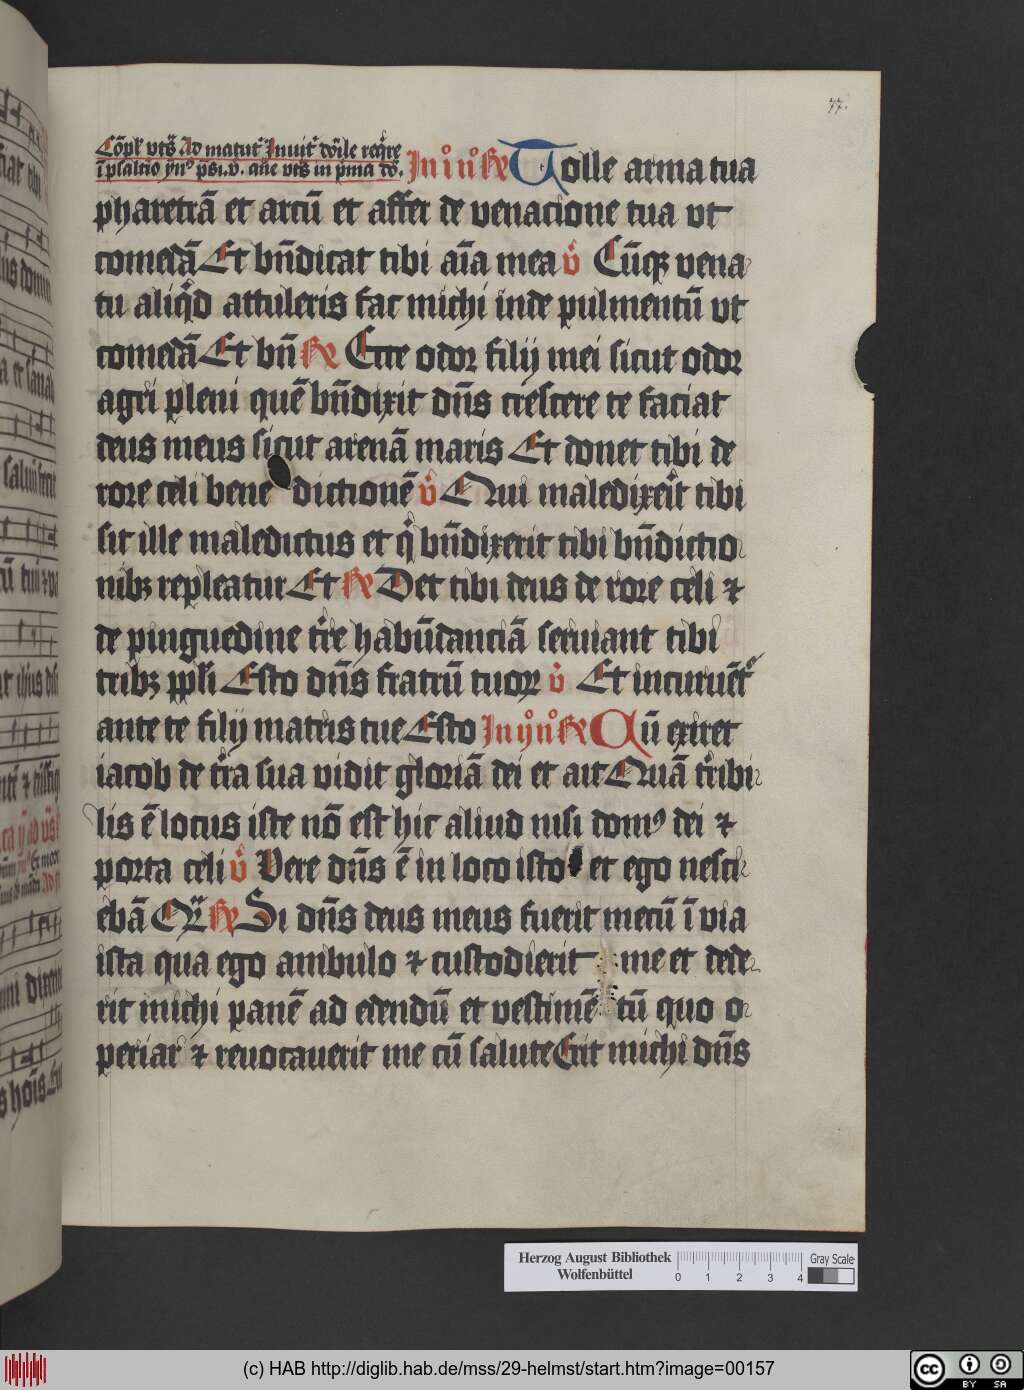 77.
Cōpl' vt sꝰ Ad matutꝭ Inuitꝭ dn̄le req̄re
ī psalt'io yn̄ꝰ psi. v̄. an̄e vt sꝰ in p̄ma do.
In i nᵒ ℟ Tolle arma tua
pharetrā et arcū et affer de venacione tua vt
comedā Et bn̄dicat tibi aīa mea v̄ Cūqꝫ vena
tu aliqͥd attuleris fac michi inde pulmentū vt
comedā Et bn̄ ℟ Ecce odor filij mei sicut odor
agri pleni quē bn̄dixit dn̄s crescere te faciat
deus meus sicut arenā maris Et donet tibi de
rore celi bene dictionē v̄ Qui maledixeīt tibi
sit ille maledictus et qͥ bn̄dixerit tibi bn̄dictio
nibꝫ repleatur Et ℟ Det tibi deus de rore celi ⁊
de pinguedine tr̄e habūdanciā seruiant tibi
tribꝫ ppl'i Esto dn̄s fratrū tuoꝝ v̄ Et incuruēt᷑
ante te filij matris tue Esto In ij nᵒ ℟ Cū exiret
iacob de tr̄a sua vidit gloriā dei et ait Quā tr̄ibi
lis ē locus iste nō est hic aliud nisi domꝰ dei ⁊
porta celi v̄ Vere dn̄s ē in loco isto et ego nesci
ebā Qr̄ ℟ Si dn̄s deus meus fuerit mecū ī via
ista qua ego ambulo ⁊ custodierit me et dede
rit michi panē ad edendū et vestimē tū quo o
periar ⁊ reuocauerit me cū salute Erit michi dn̄s
Herzog August Bibliothek
Wolfenbüttel
0 1 2 3 4
Gray Scale
(c) HAB http://diglib.hab.de/mss/29-helmst/start.htm?image=00157
cc BY SA